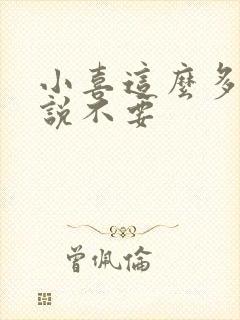 小喜這麼多
說不要
曾佩倫